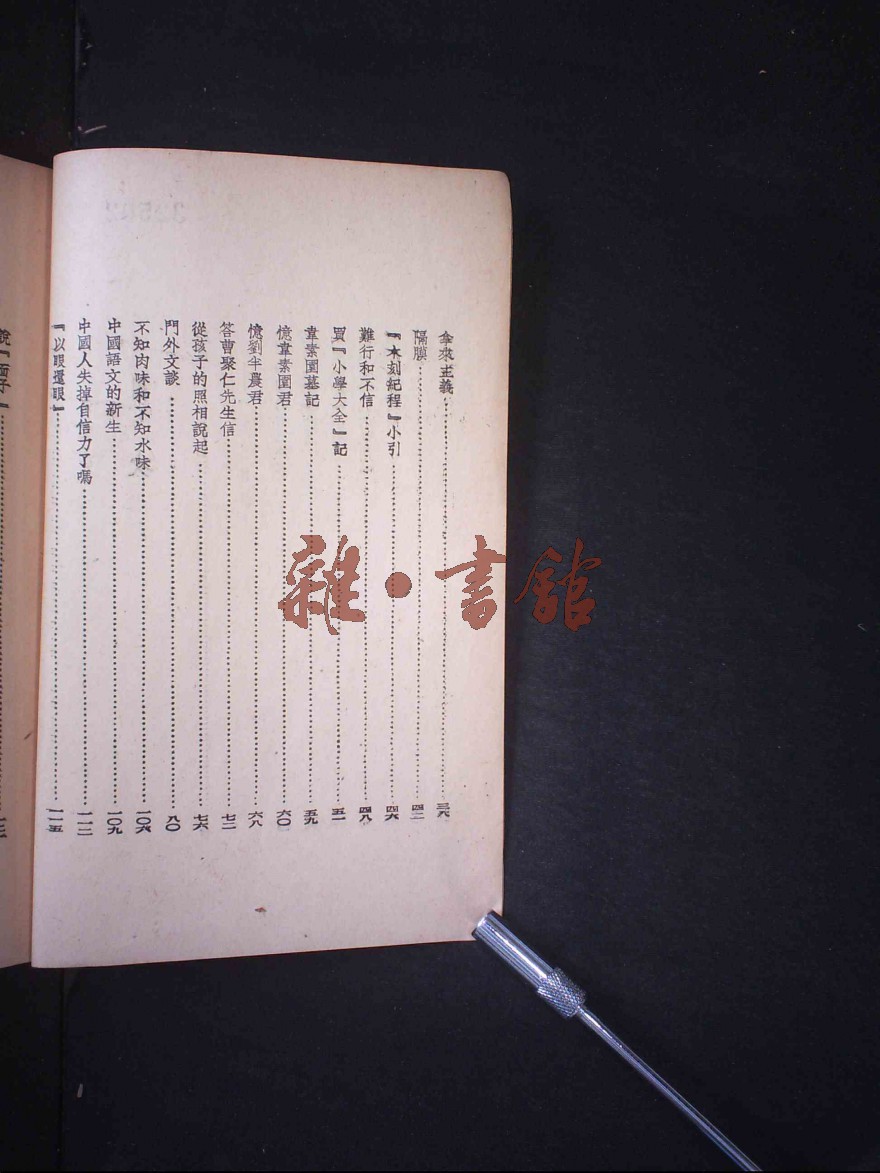 拿來主義……三八
隔膜……四二
『木刻紀程』小引……四六
難行和不信……四八
買『小學大全』記……五一
韋素園墓記……五九
憶韋素園君……六〇
憶劉半農君……六八
答曹聚仁先生信……七二
從孩子的照相說起……七六
門外文談……八〇
不知肉味和不知水味……一〇六
中國語文的新生……一〇九
中國人失掉自信力了嗎……一一二
『以眼還眼』……一一五
說『面子』
雜·書館